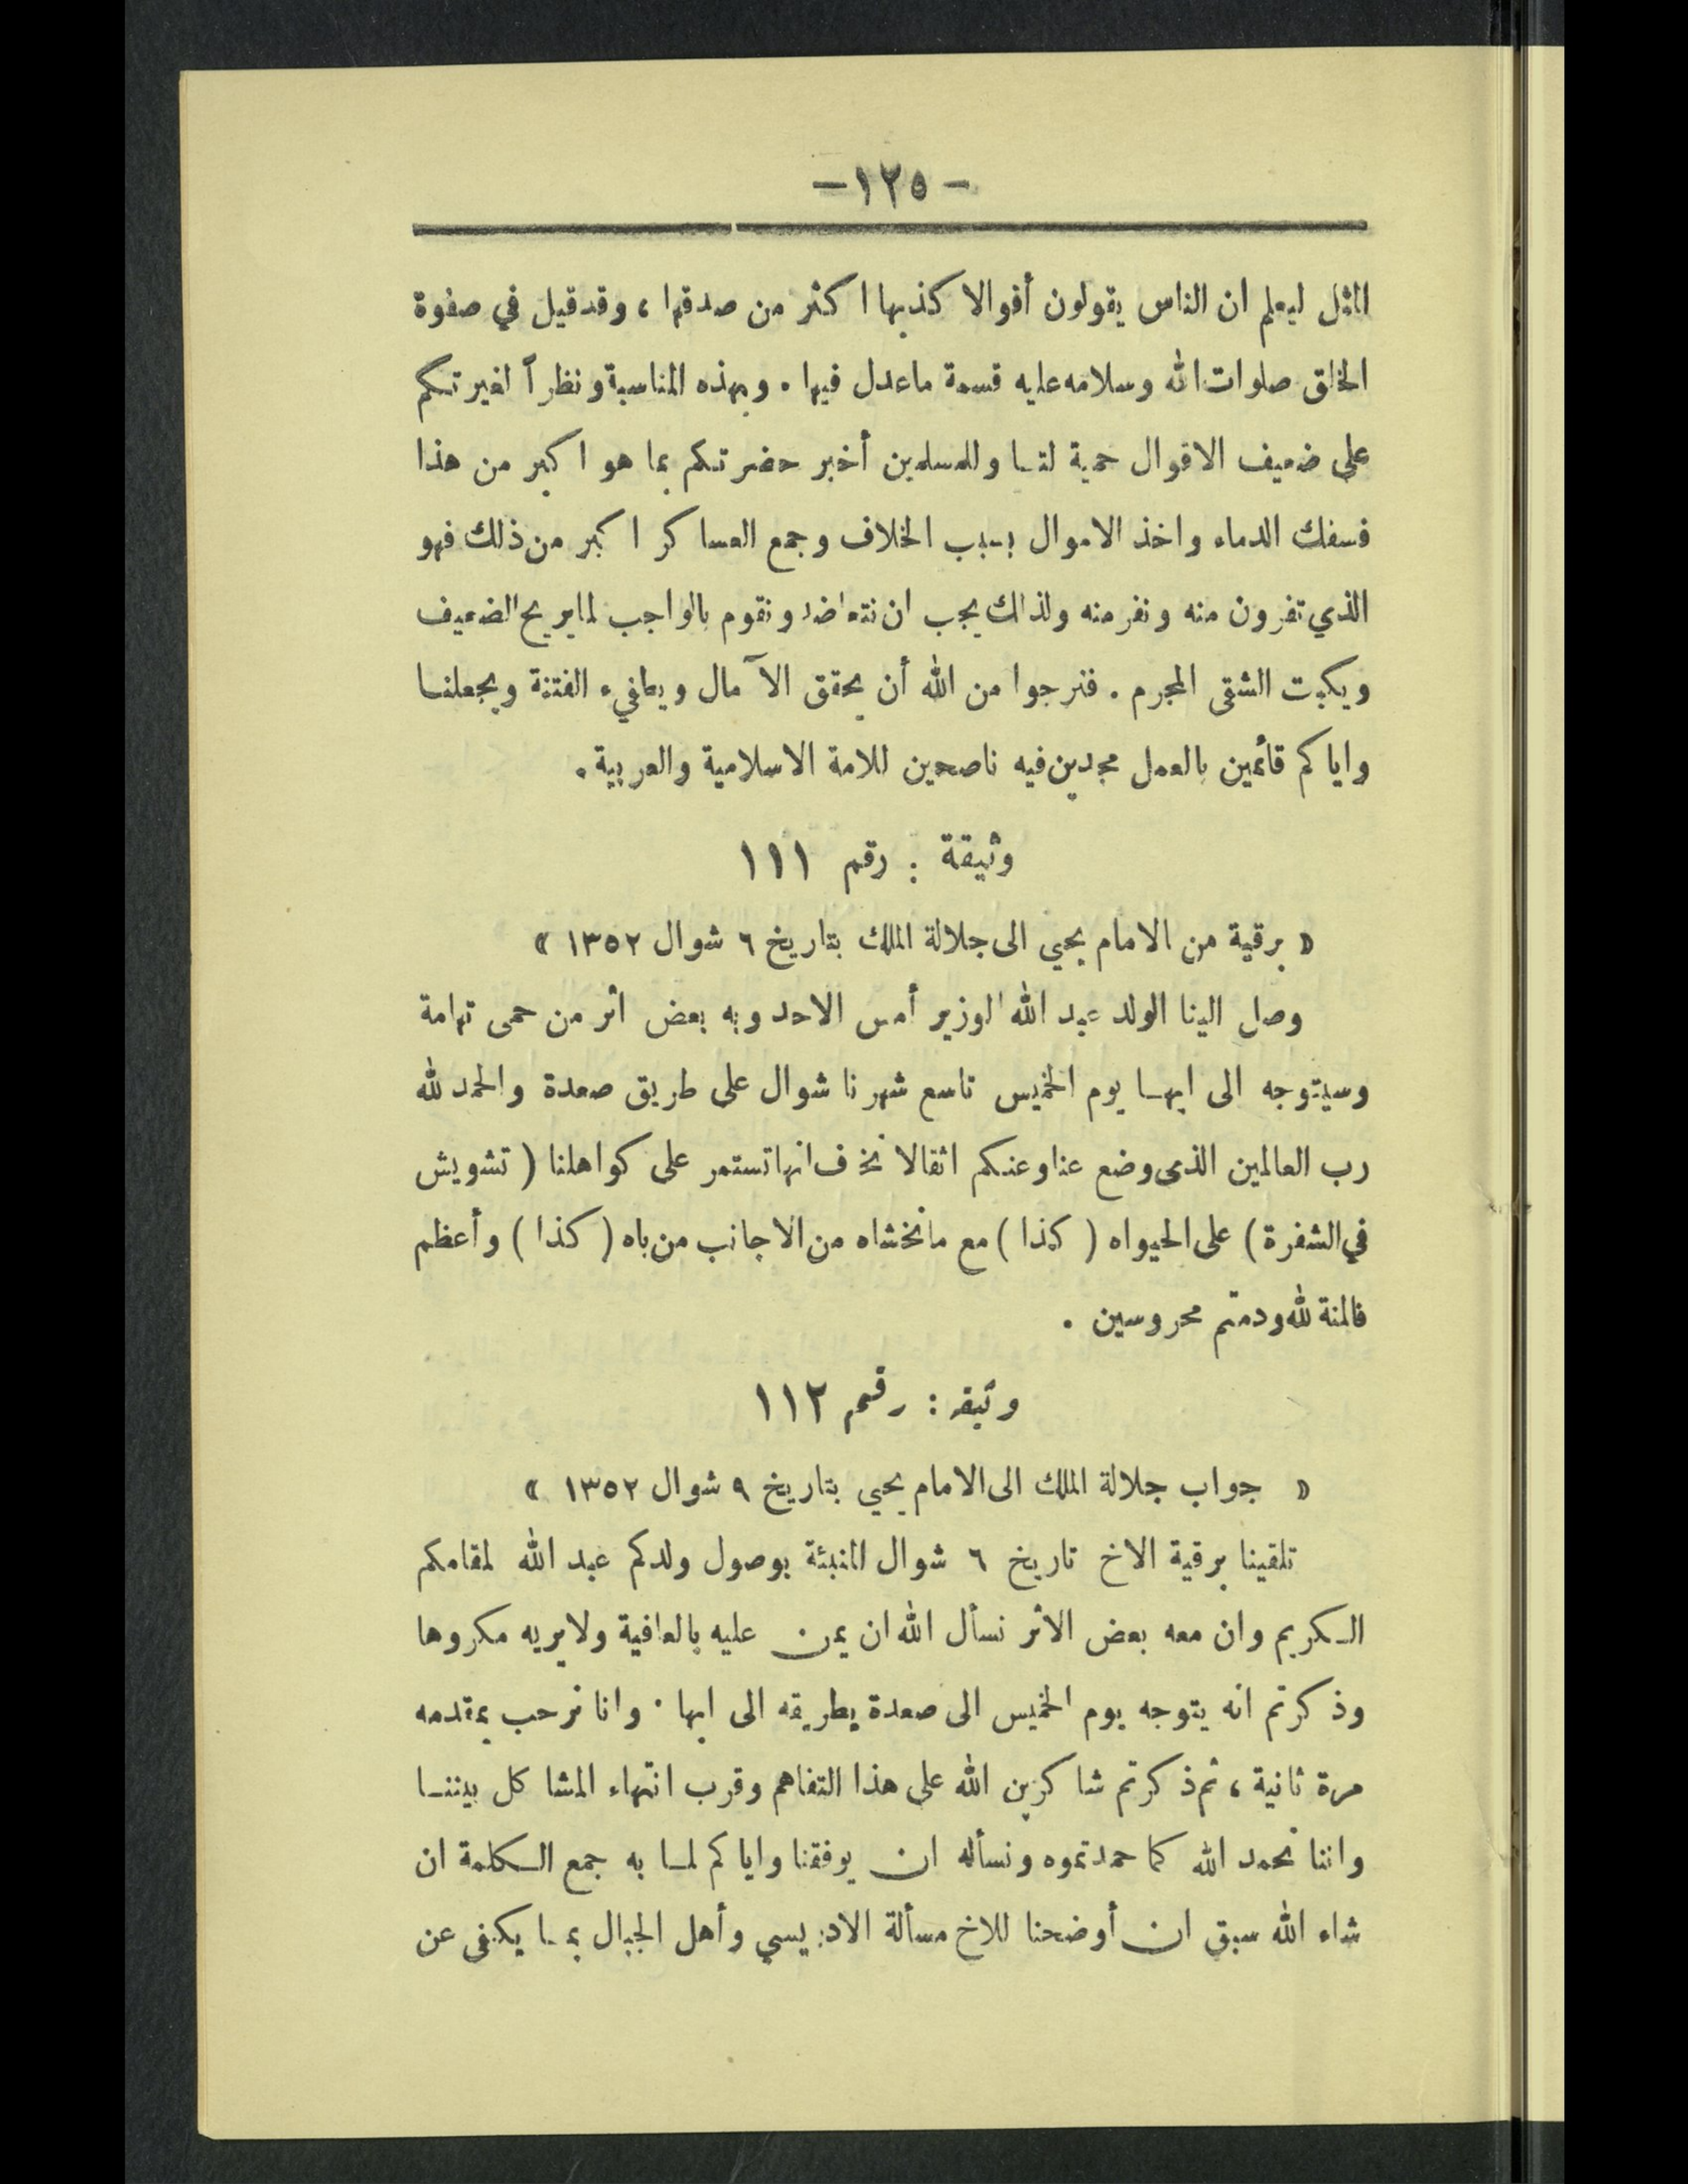 -١٢٥-
المثل ليعلم ان الناس يقولون أقوالا كذبها اكثر من صدقها ، وقد قيل في صفوة
الخلق صلوات الله وسلامه عليه قسمة ما عدل فيها . وبهذه المناسبة ونظراً لغيرتكم
على ضعيف الاقوال حمية لنا وللمسلمين أخبر حضرتكم بما هو اكبر من هذا
فسفك الدماء واخذ الاموال بسبب الخلاف وجمع العساكر اكبر من ذلك فهو
الذي تفرون منه ونفر منه ولذلك يجب ان نتعاضد ونقوم بالواجب لما يريح الضعيف
ويكبت الشقى المجرم . فنرجوا من الله أن يحقق الآمال ويطفيء الفتنة ويجعلنا
واياكم قائمين بالعمل مجدين فيه ناصحين للامة الاسلامية والعربية .
وثيقة : رقم ١١١
« برقية من الامام يحيي الى جلالة الملك بتاريخ ٦ شوال ١٣٥٢ »
وصل الينا الولد عبد الله الوزير أمس الاحد وبه بعض اثر من حمى تهامة
وسيتوجه الى ابها يوم الخميس تاسع شهرنا شوال على طريق صعدة والحمد لله
رب العالمين الذى وضع عنا وعنكم اثقالا نخف انها تستمر على كواهلنا ( تشويش
في الشفرة ) على الحيواه ( كذا ) مع مانخشاه من الاجانب من باه ( كذا ) وأعظم
فالمنة لله ودمتم محروسين .
وثيقة : رقم ١١٢
« جواب جلالة الملك الى الامام يحيي بتاريخ ٩ شوال ١٣٥٢ »
تلقينا برقية الاخ تاريخ ٦ شوال المنبئة بوصول ولدكم عبد الله لمقامكم
الكريم وان معه بعض الاثر نسأل الله ان يمن عليه بالعافية ولا يريه مكروها
وذكرتم انه يتوجه يوم الخميس الى صعدة بطريقه الى ابها . وانا نرحب بمقدمه
مرة ثانية ، ثم ذكرتم شاكرين الله على هذا التفاهم وقرب انتهاء المشاكل بيننا
واننا نحمد الله كما حمدتموه ونسأله ان يوفقنا واياكم لما به جمع الكلمة ان
شاء الله سبق ان أوضحنا للاخ مسألة الادريسي وأهل الجبال بما يكفى عن